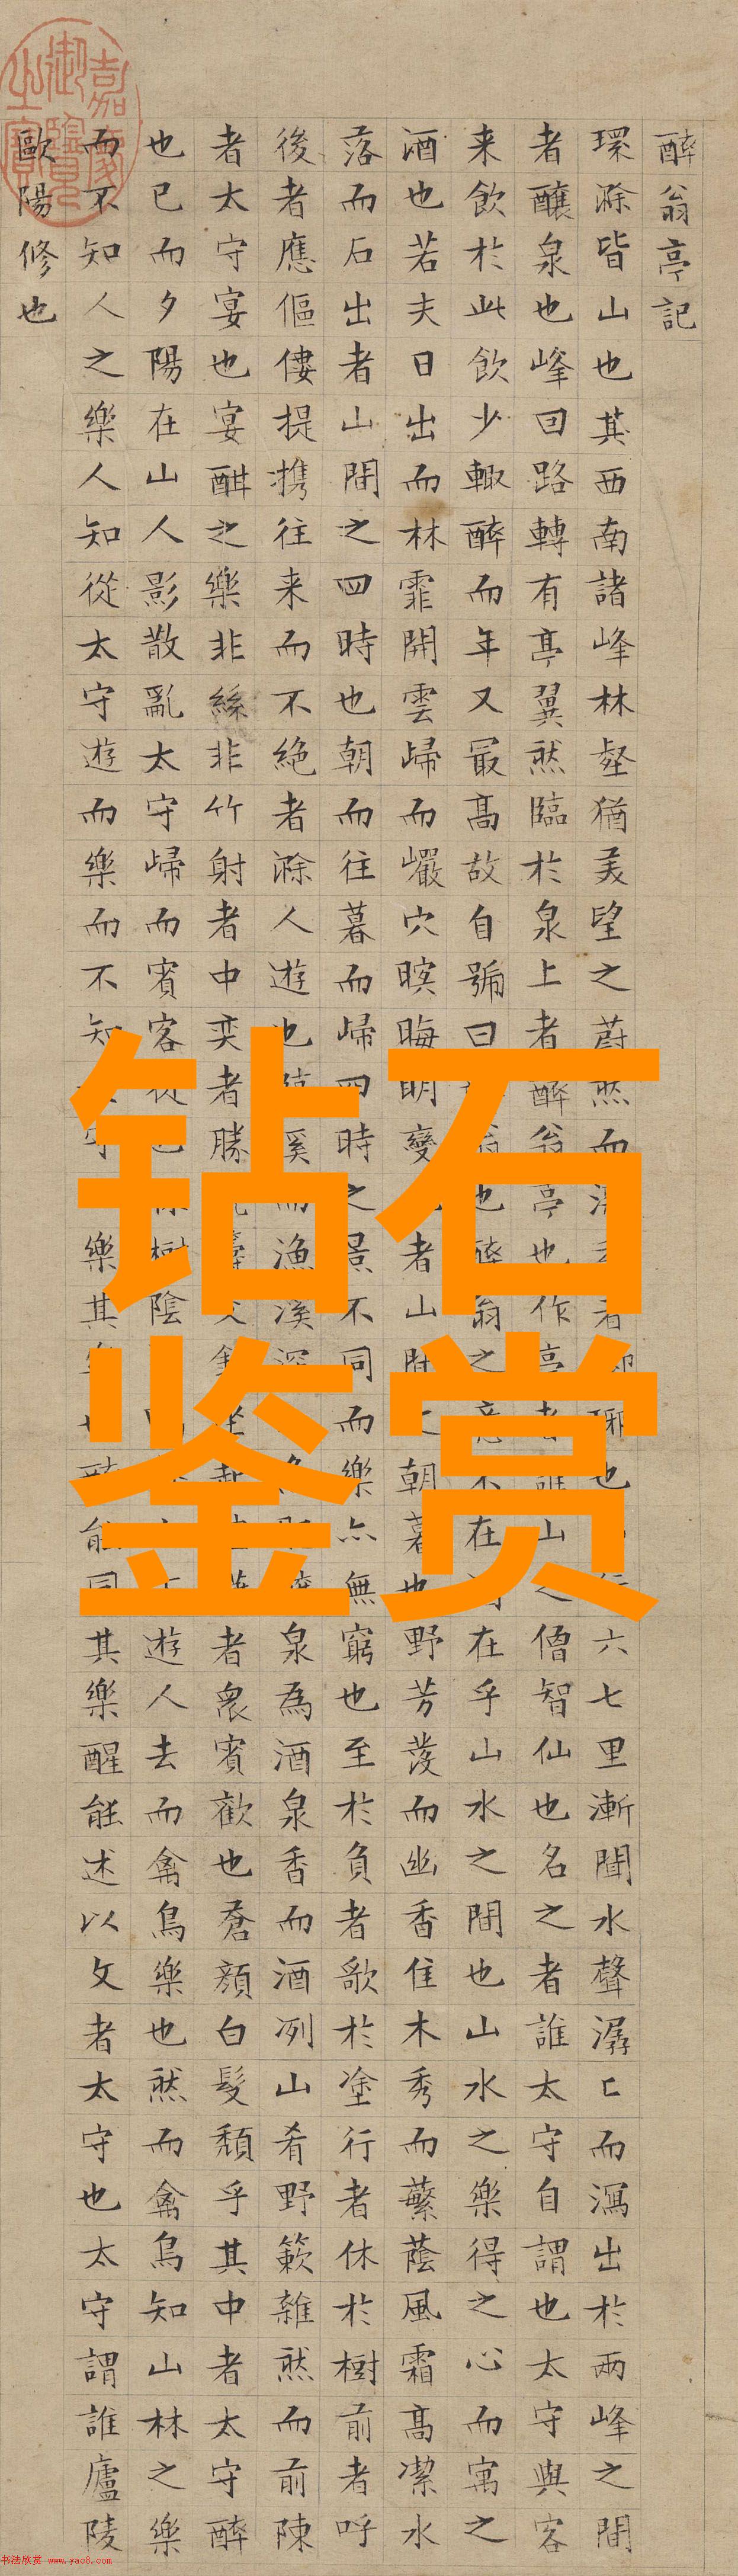 醉翁亭記
環滁皆山也其西南諸峰林壑猶美望之蔚然而深者琊也六七里漸聞水聲潺匕而瀉出於兩峰之間
者釀泉也峰回路轉有亭翼然臨於泉上者醉翁亭也作亭者誰山之僧智仙也名之者誰太守自謂也太守與客
来飲於此飲少輒醉而年又最高故自號曰翁也醉翁之意不在在乎山水之間也山水之樂得之心而寓之
酒也若夫日出而林霏開雲歸而巖穴暝晦明變者山間之朝暮也野芳發而幽香佳木秀而蘩蔭風霜高潔水
落而石出者山間之四時也朝而往暮而歸四時之景不同而樂亦無窮也至於負者歌於塗行者休於樹前者呼
後者應傴僂提攜往来而不絶者滁人遊也溪而漁溪深泉為酒泉香而酒冽山肴野簌雜然而前陳
者太守宴也宴酣之樂非絲非竹射者中奕者勝籌交坐起者衆賓歡也蒼顏白髮頹乎其中者太守醉
也已而夕陽在山人影散亂太守歸而賓客從也樹陰遊人去而禽鳥樂也然而禽鳥知山林之樂
而不知人之樂人知從太守遊而樂而不知守樂其也醉能同其樂醒能述以文者太守也太守謂誰廬陵
歐陽修也
嘉慶御覽之寶
钻石
鉴赏
书法欣赏 www.yac8.com